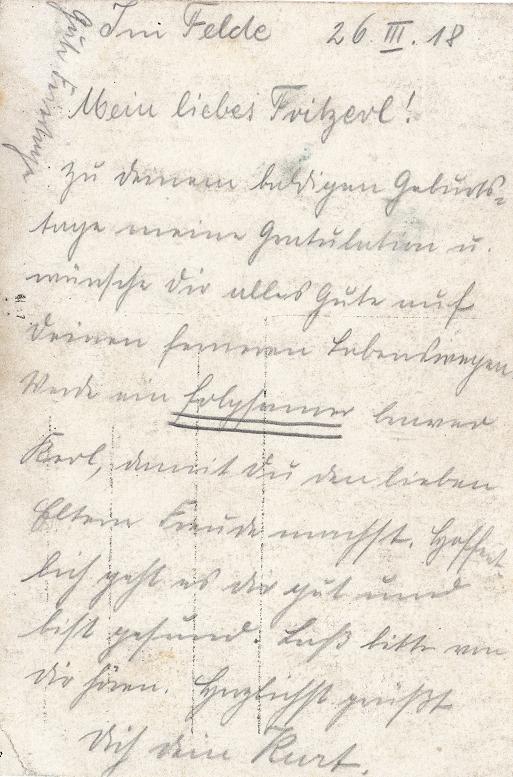 Im Felde 26. III. 18
Mein liebes Fritzerl!
Zu deinem baldigen Geburts-
tage meine Gratulation u.
wünsche dir alles Gute auf
deinen ferneren Lebenswegen
Werde ein folgsamer braver
Kerl, damit du den lieben
Eltern Freude machst. Hoffent
lich geht es dir gut und
bist gesund. Laß bitte von
dir hören. Herzlichst grüßt
dich dein Kurt.
Gute